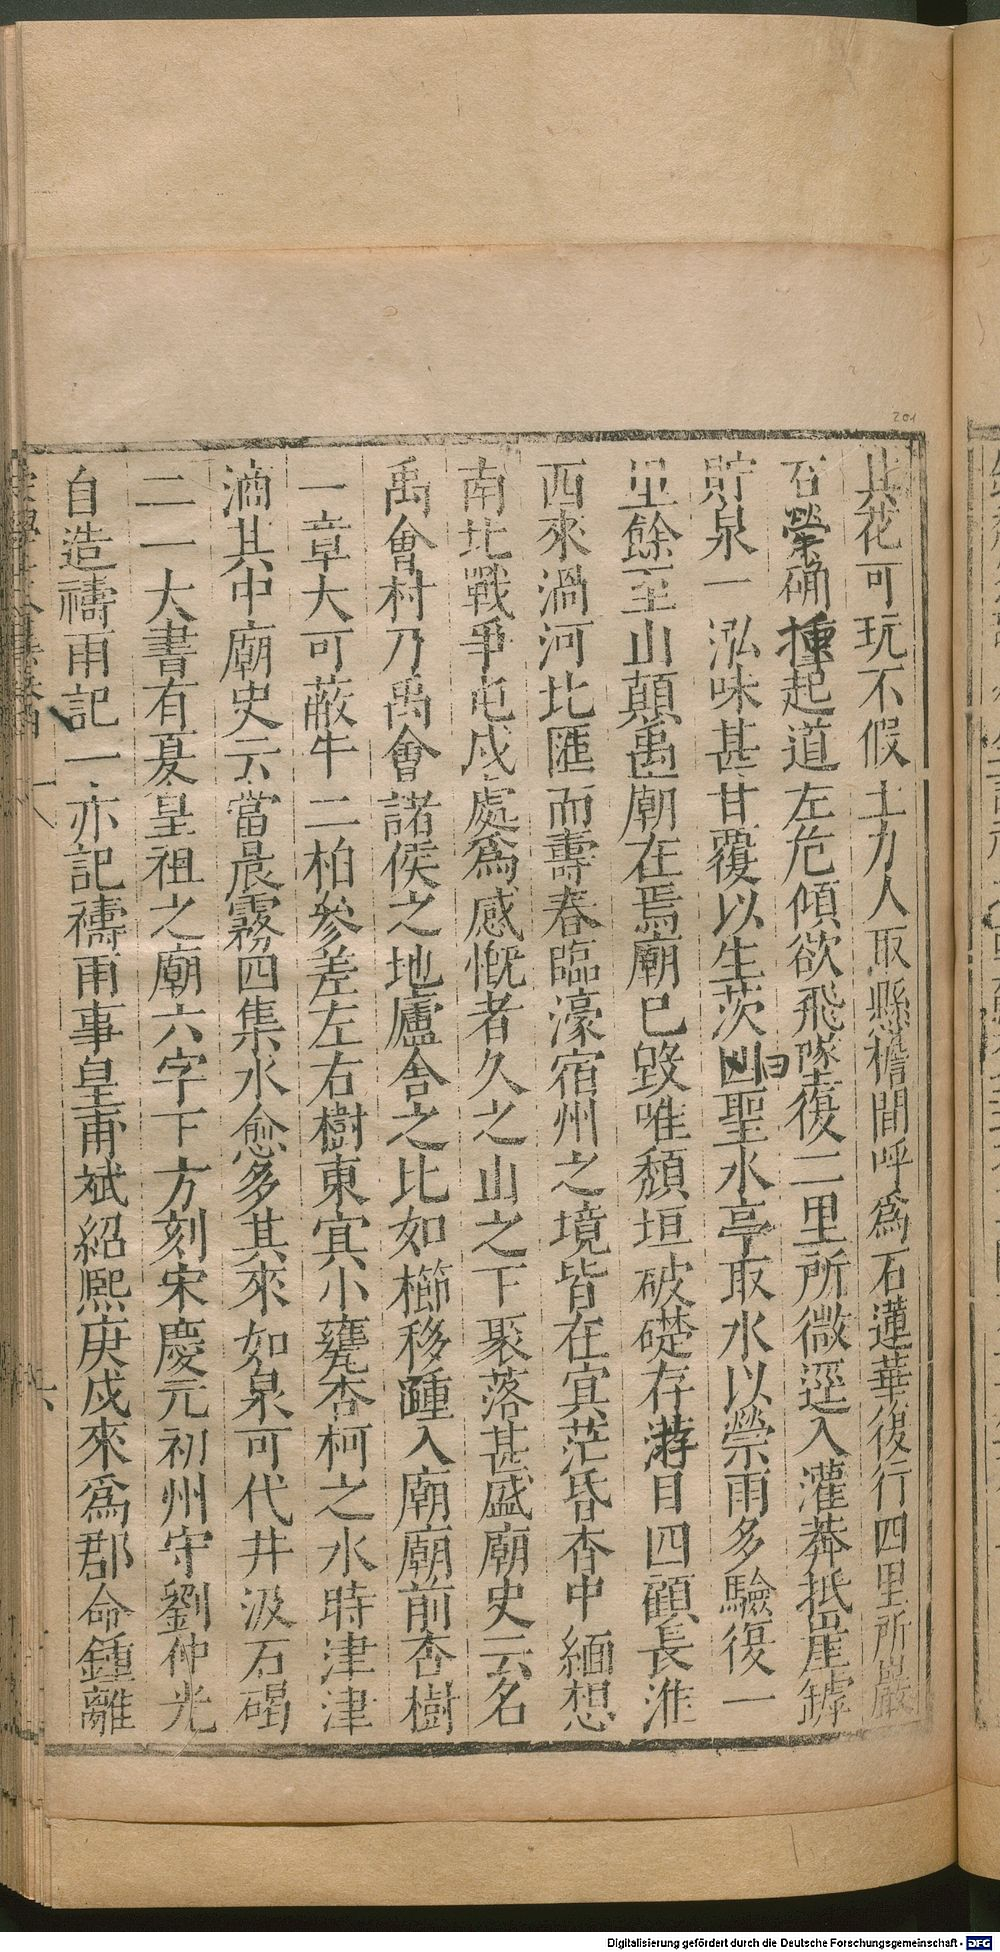 其花可玩不假土力人取懸檐間呼為石蓮華復行四里所嚴
石犖确撞起道左危傾欲飛墜復二里所微逕入灌莽抵崖罅
貯泉一泓味甚甘覆以生茨曰聖水亭取水以禜雨多驗復一
里餘至山顛禹廟在焉廟已毀唯頹垣破礎存游目四顧長淮
西來渦河北匯而壽春臨濠宿州之境皆在㝠茫昏杳中緬想
南北戰爭屯戍處為感慨者久之山之下聚落甚盛廟史云名
禹會村乃禹會諸侯之地廬舍之比如櫛移踵入廟廟前杏樹
一章大可蔽牛二柏參差左右樹東寘小甕杏柯之水時津津
滴其中廟史云當晨霧四集水愈多其來如泉可代井汲石碣
二一大書有夏皇祖之廟六字下方刻宋慶元初州守劉仲光
自造禱雨記一亦記禱雨事皇甫斌紹熙庚戌來為郡命鍾離
201
Digitalisierung gefördert durch die Deutsche Forschungsgemeinschaft - DFG